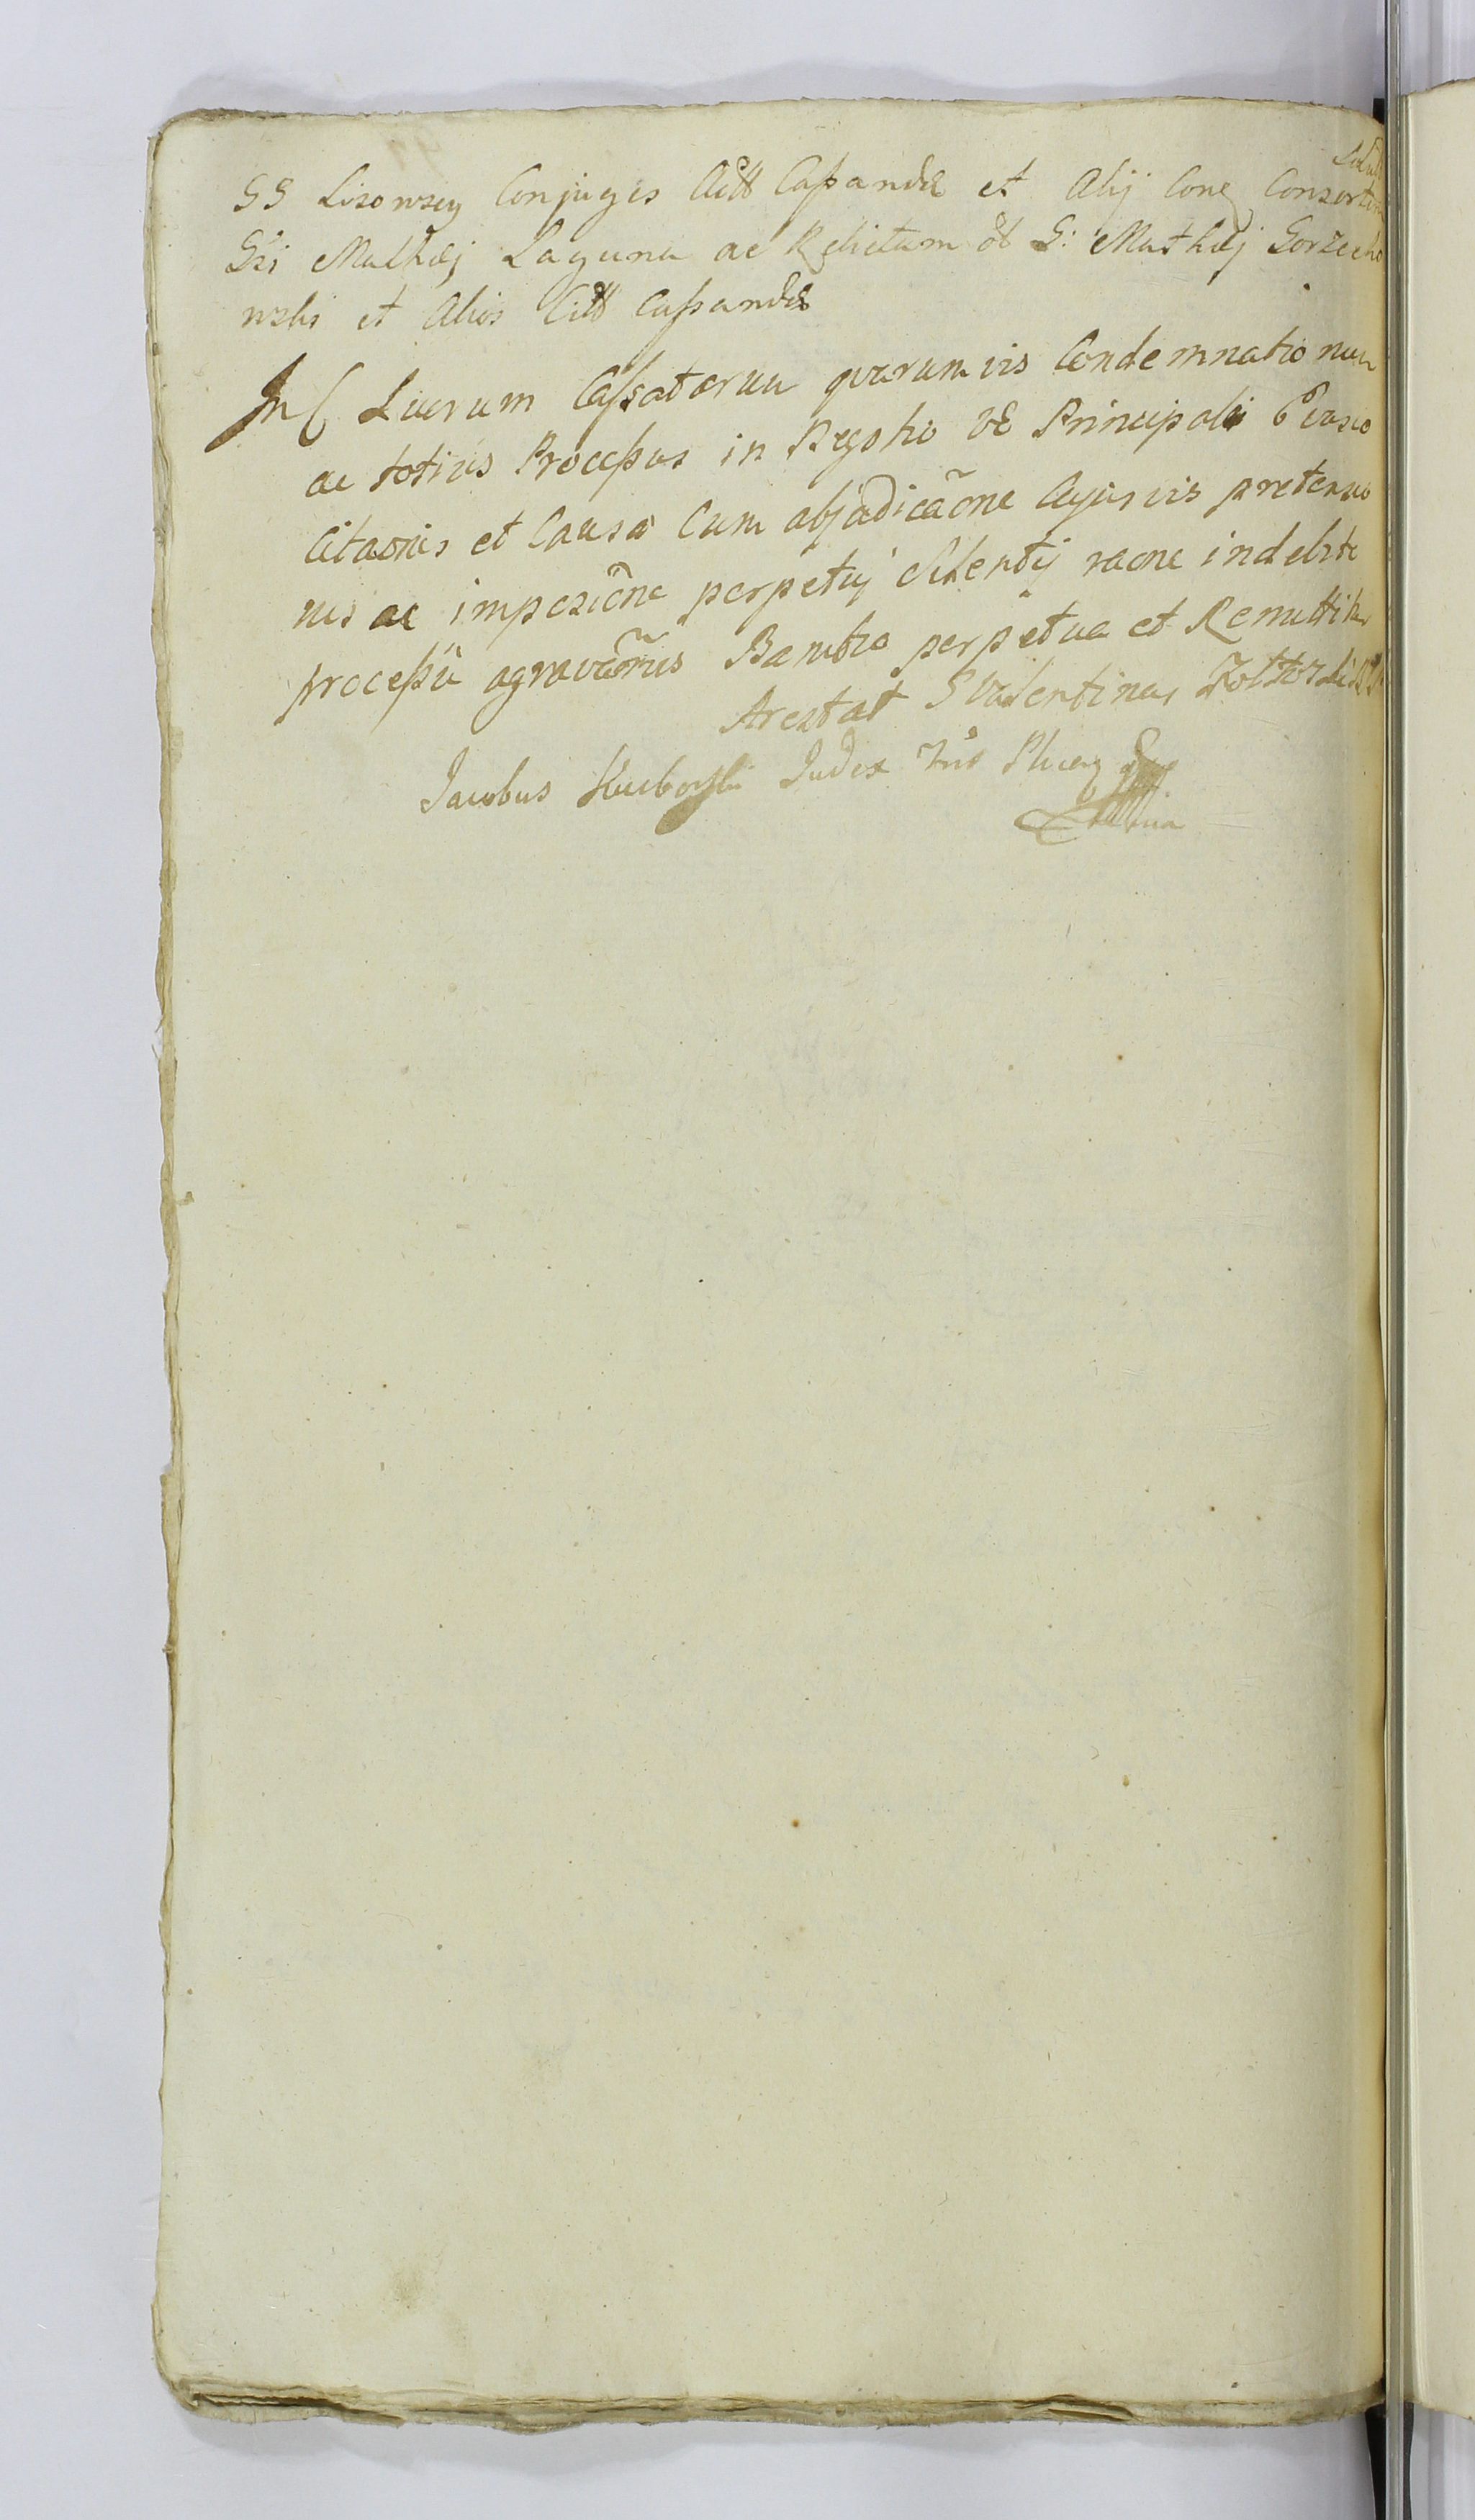 GG Lisowscy Conjuges Citt Cassandæ et Alij Cone Consortem
Gsi Mathæj Laguna ac Relictum ol G: Mathæj Gorzecho
wski et Alios Citt Cassandæ
In C Lucrum Cassatarum quarumvis Condemnationum
ac totius Processus in Regstro vel Principali
Citaonis et Causa Cum abjudicãone Cujusvis pretensio
nis ac imposiõne perpetuj Silentij raõne indebite
processũ agravãonis Bannitio perpetua et Remittitur
Arestat G Valentinus
Jacobus Kuiborski Judex Tris Plicen